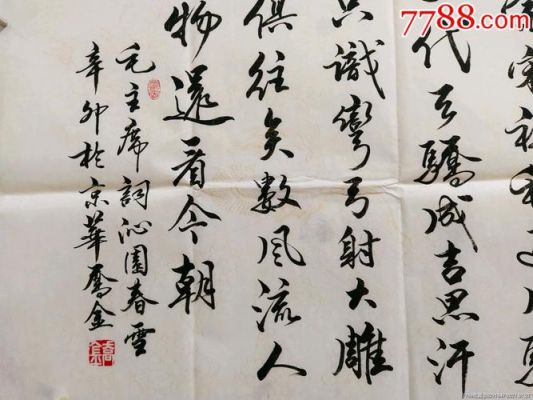 7788.com
代天驕成吉思汗
只識彎弓射大雕
俱往矣數風流人
物還看今朝
毛主席詞沁園春雪
辛卯於京華喬金